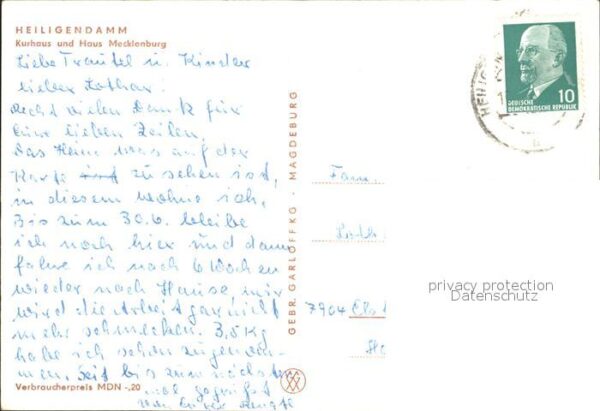 HEILIGENDAMM
Kurhaus und Haus Mecklenburg
Liebe Trautel u. Kinder
lieber Lothar!
Recht vielen Dank für
Eure lieben Zeilen.
Das Heim was auf der
Karte zu sehen ist,
in diesem wohne ich,
Bis zum 30.6. bleibe
ich noch hier und dann
fahre ich nach 6 Wochen
wieder nach Hause, mir
wird die Arbeit gar nicht
mehr schmecken. 3,5 Kg
habe ich schon zugenom-
men. Seid bis zum nächsten
mal gegrüßt
von Eurer
Verbraucherpreis MDN -,20
GEBR. GARLOFF KG · MAGDEBURG
Fam.
7904
10
DEUTSCHE
DEMOKRATISCHE REPUBLIK
privacy protection
Datenschutz